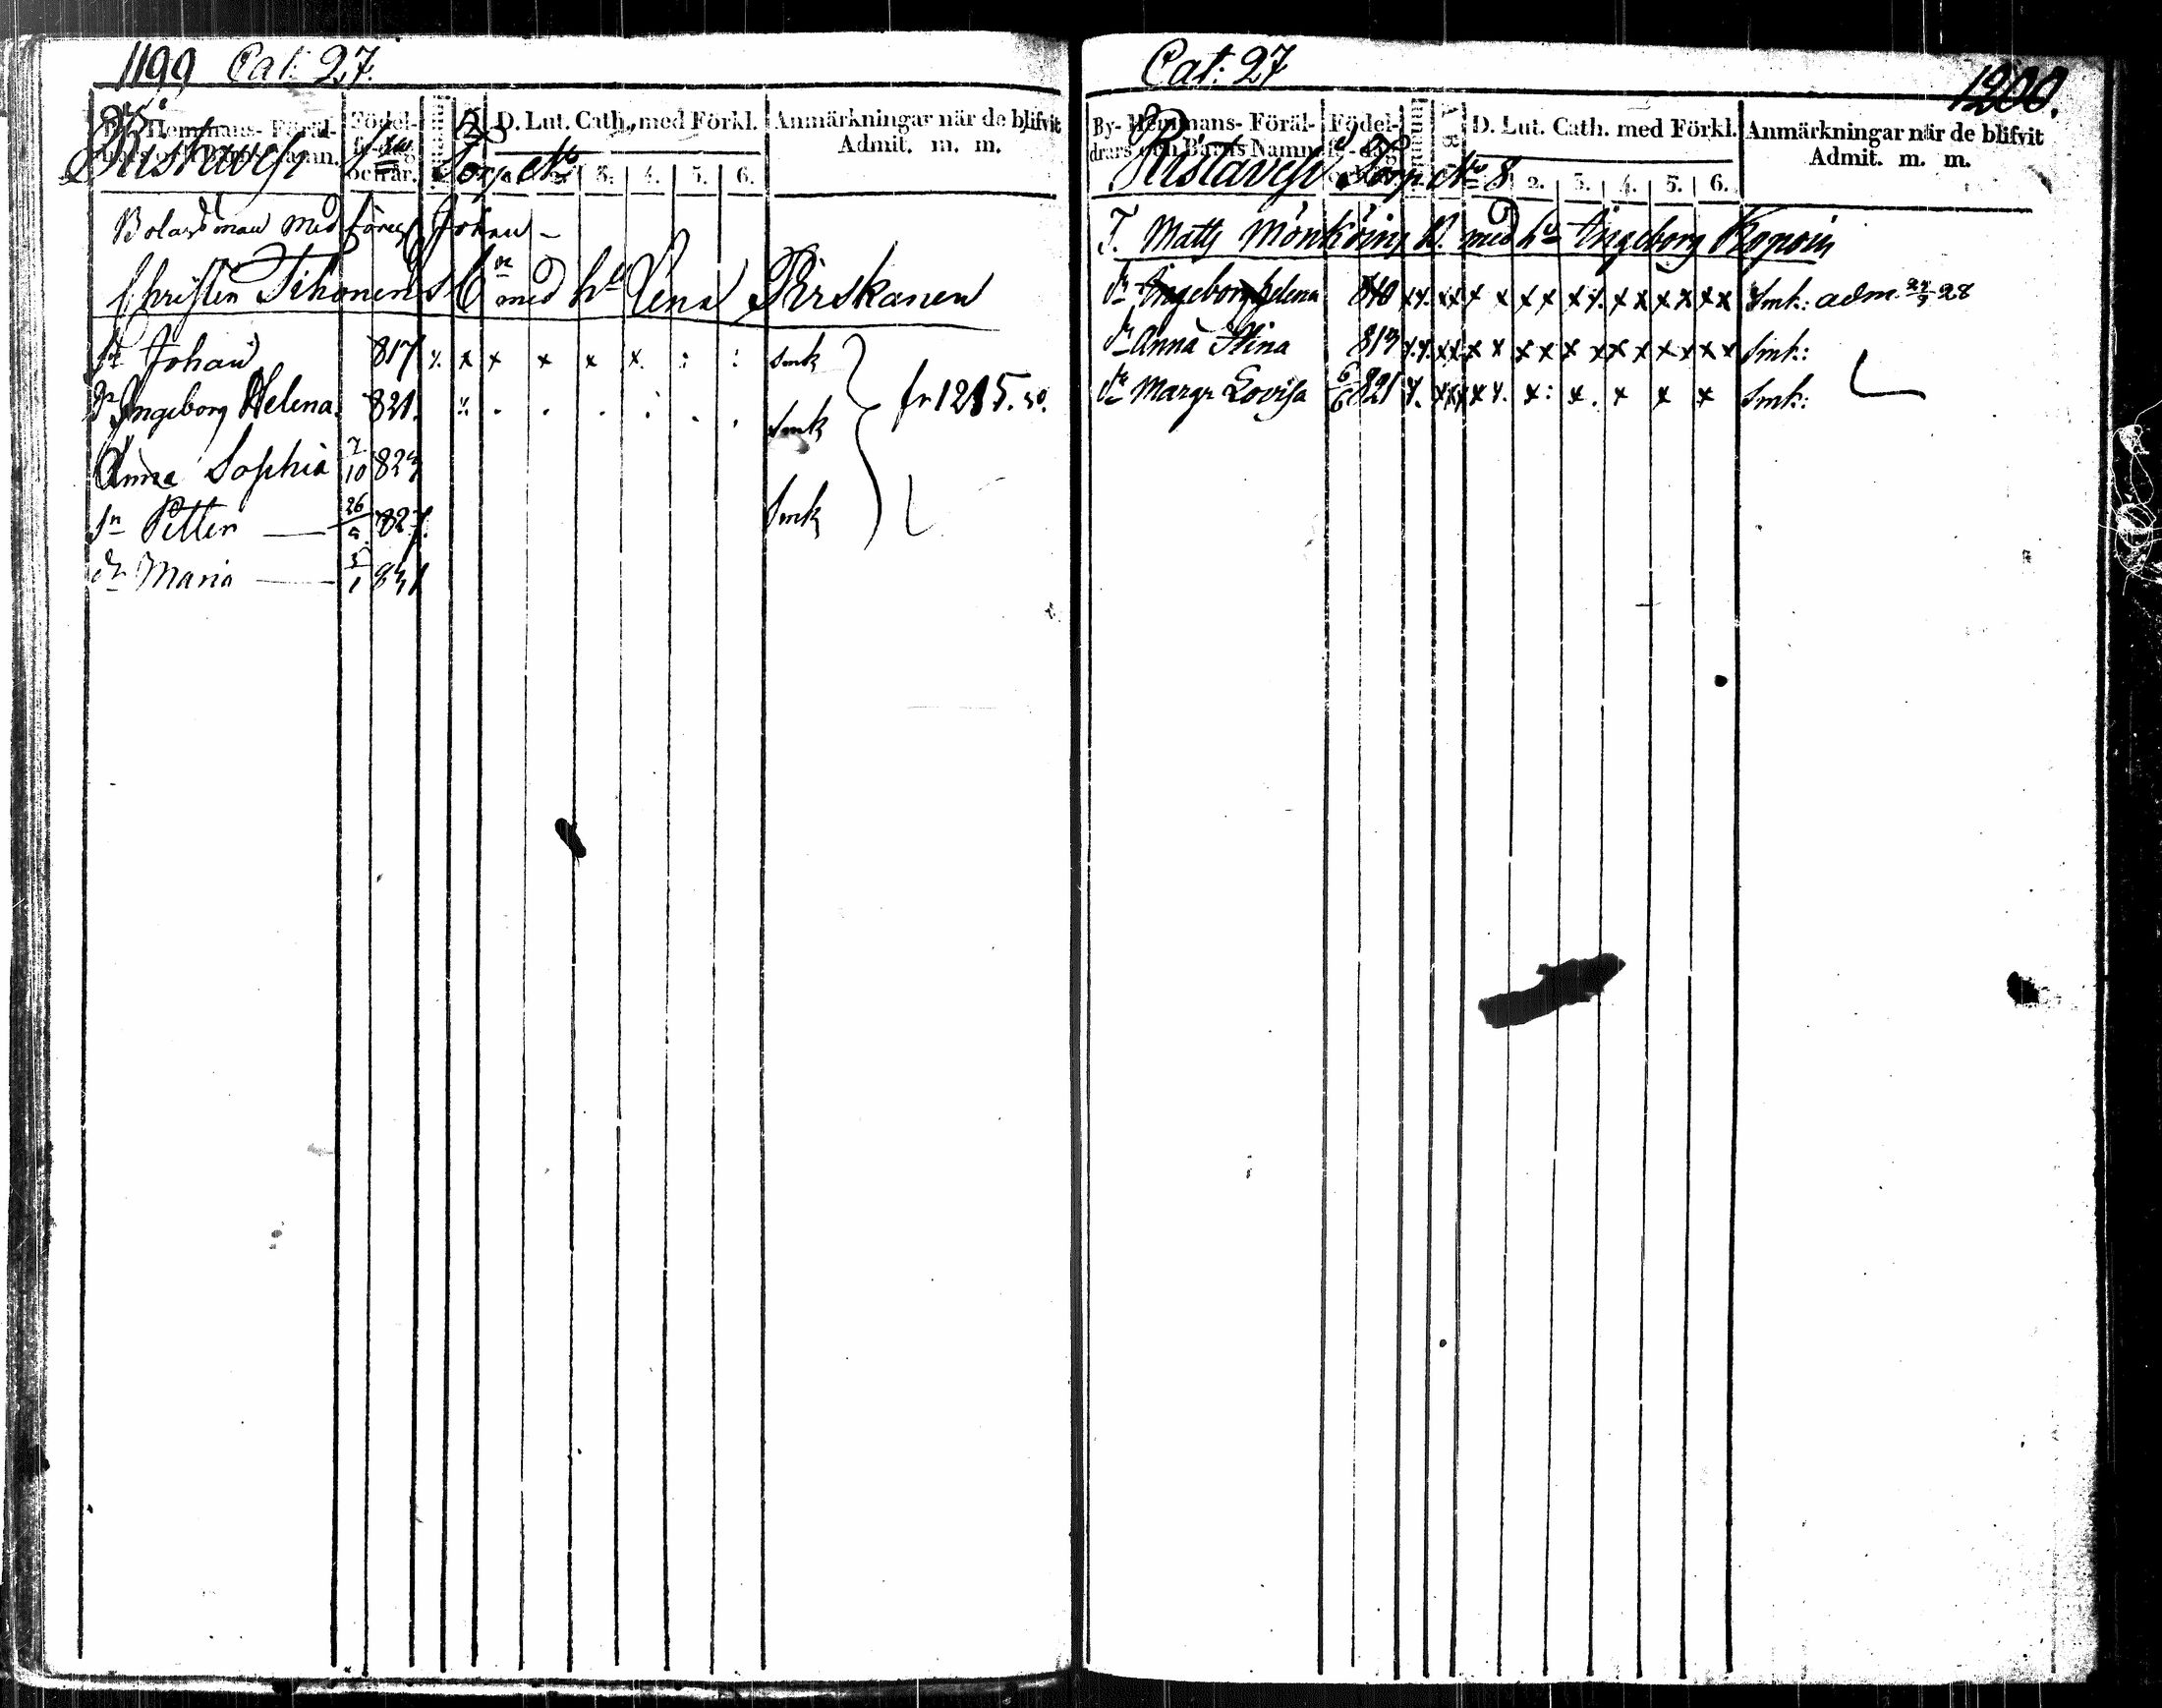 1199 Cat. 27.
By- Hemmans- Föräl- drars och Barns Namn. Födel- se-dag och år. D. Lut. Cath. med Förkl. Anmärkningar när de blifvit Admit. m. m.
Torp No 3. 4. 5. 6.
Bolagsman med Johan
Christer Tihonen med hu Lena Pirskanen
Sn Johan 817 smk
Dr Ingeborg Helena 821. smk fr 1215. 30.
Anna Sophia 7/10 823
Sn Petter 26/9 827. Smk
dr Maria 5/1 831
Cat: 27 1200.
By- Hemmans- Föräl- drars och Barns Namn Födel- se-dag D. Lut. Cath. med Förkl. Anmärkningar när de blifvit Admit. m. m.
Ristavesi Torp No 8 2. 3. 4. 5. 6.
T. Matts Mönköin med hu Ingeborg
dr Ingeborg Helena 810 Smk: adm. 28
dr Anna Stina 813 Smk:
dr Margr Lovisa 6/6 821 Smk: